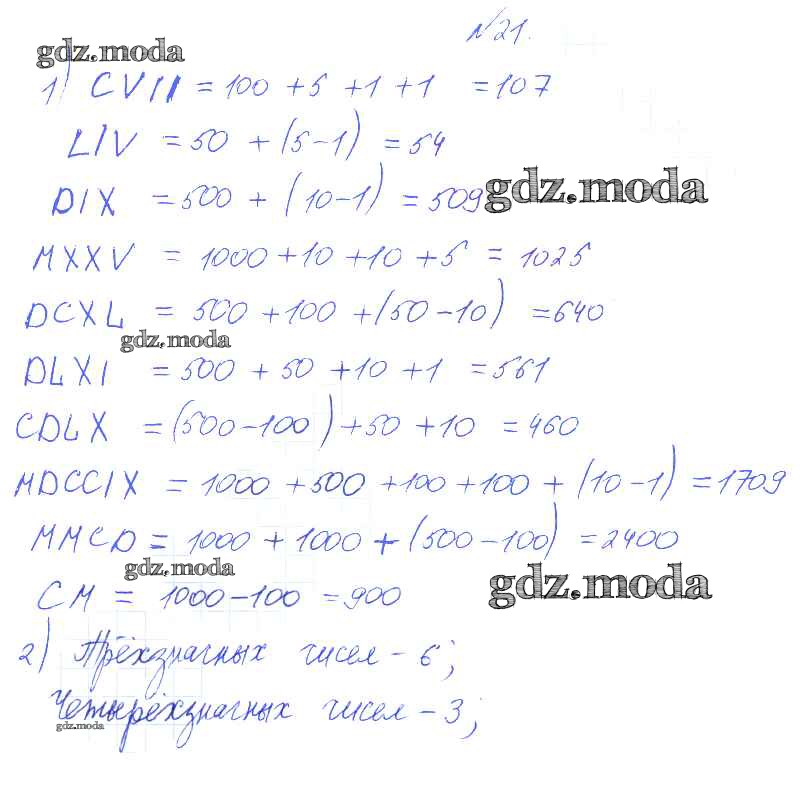 №21.
gdz.moda
1) CVII = 100 + 5 + 1 + 1 = 107
LIV = 50 + (5-1) = 54
DIX = 500 + (10-1) = 509 gdz.moda
MXXV = 1000 + 10 + 10 + 5 = 1025
DCXL = 500 + 100 + (50-10) = 640
gdz.moda
DLXI = 500 + 50 + 10 + 1 = 561
CDLX = (500-100) + 50 + 10 = 460
MDCCIX = 1000 + 500 + 100 + 100 + (10-1) = 1709
MMCD = 1000 + 1000 + (500-100) = 2400
gdz.moda gdz.moda
CM = 1000-100 = 900
2) Трёхзначных чисел - 6;
Четырёхзначных чисел - 3;
gdz.moda